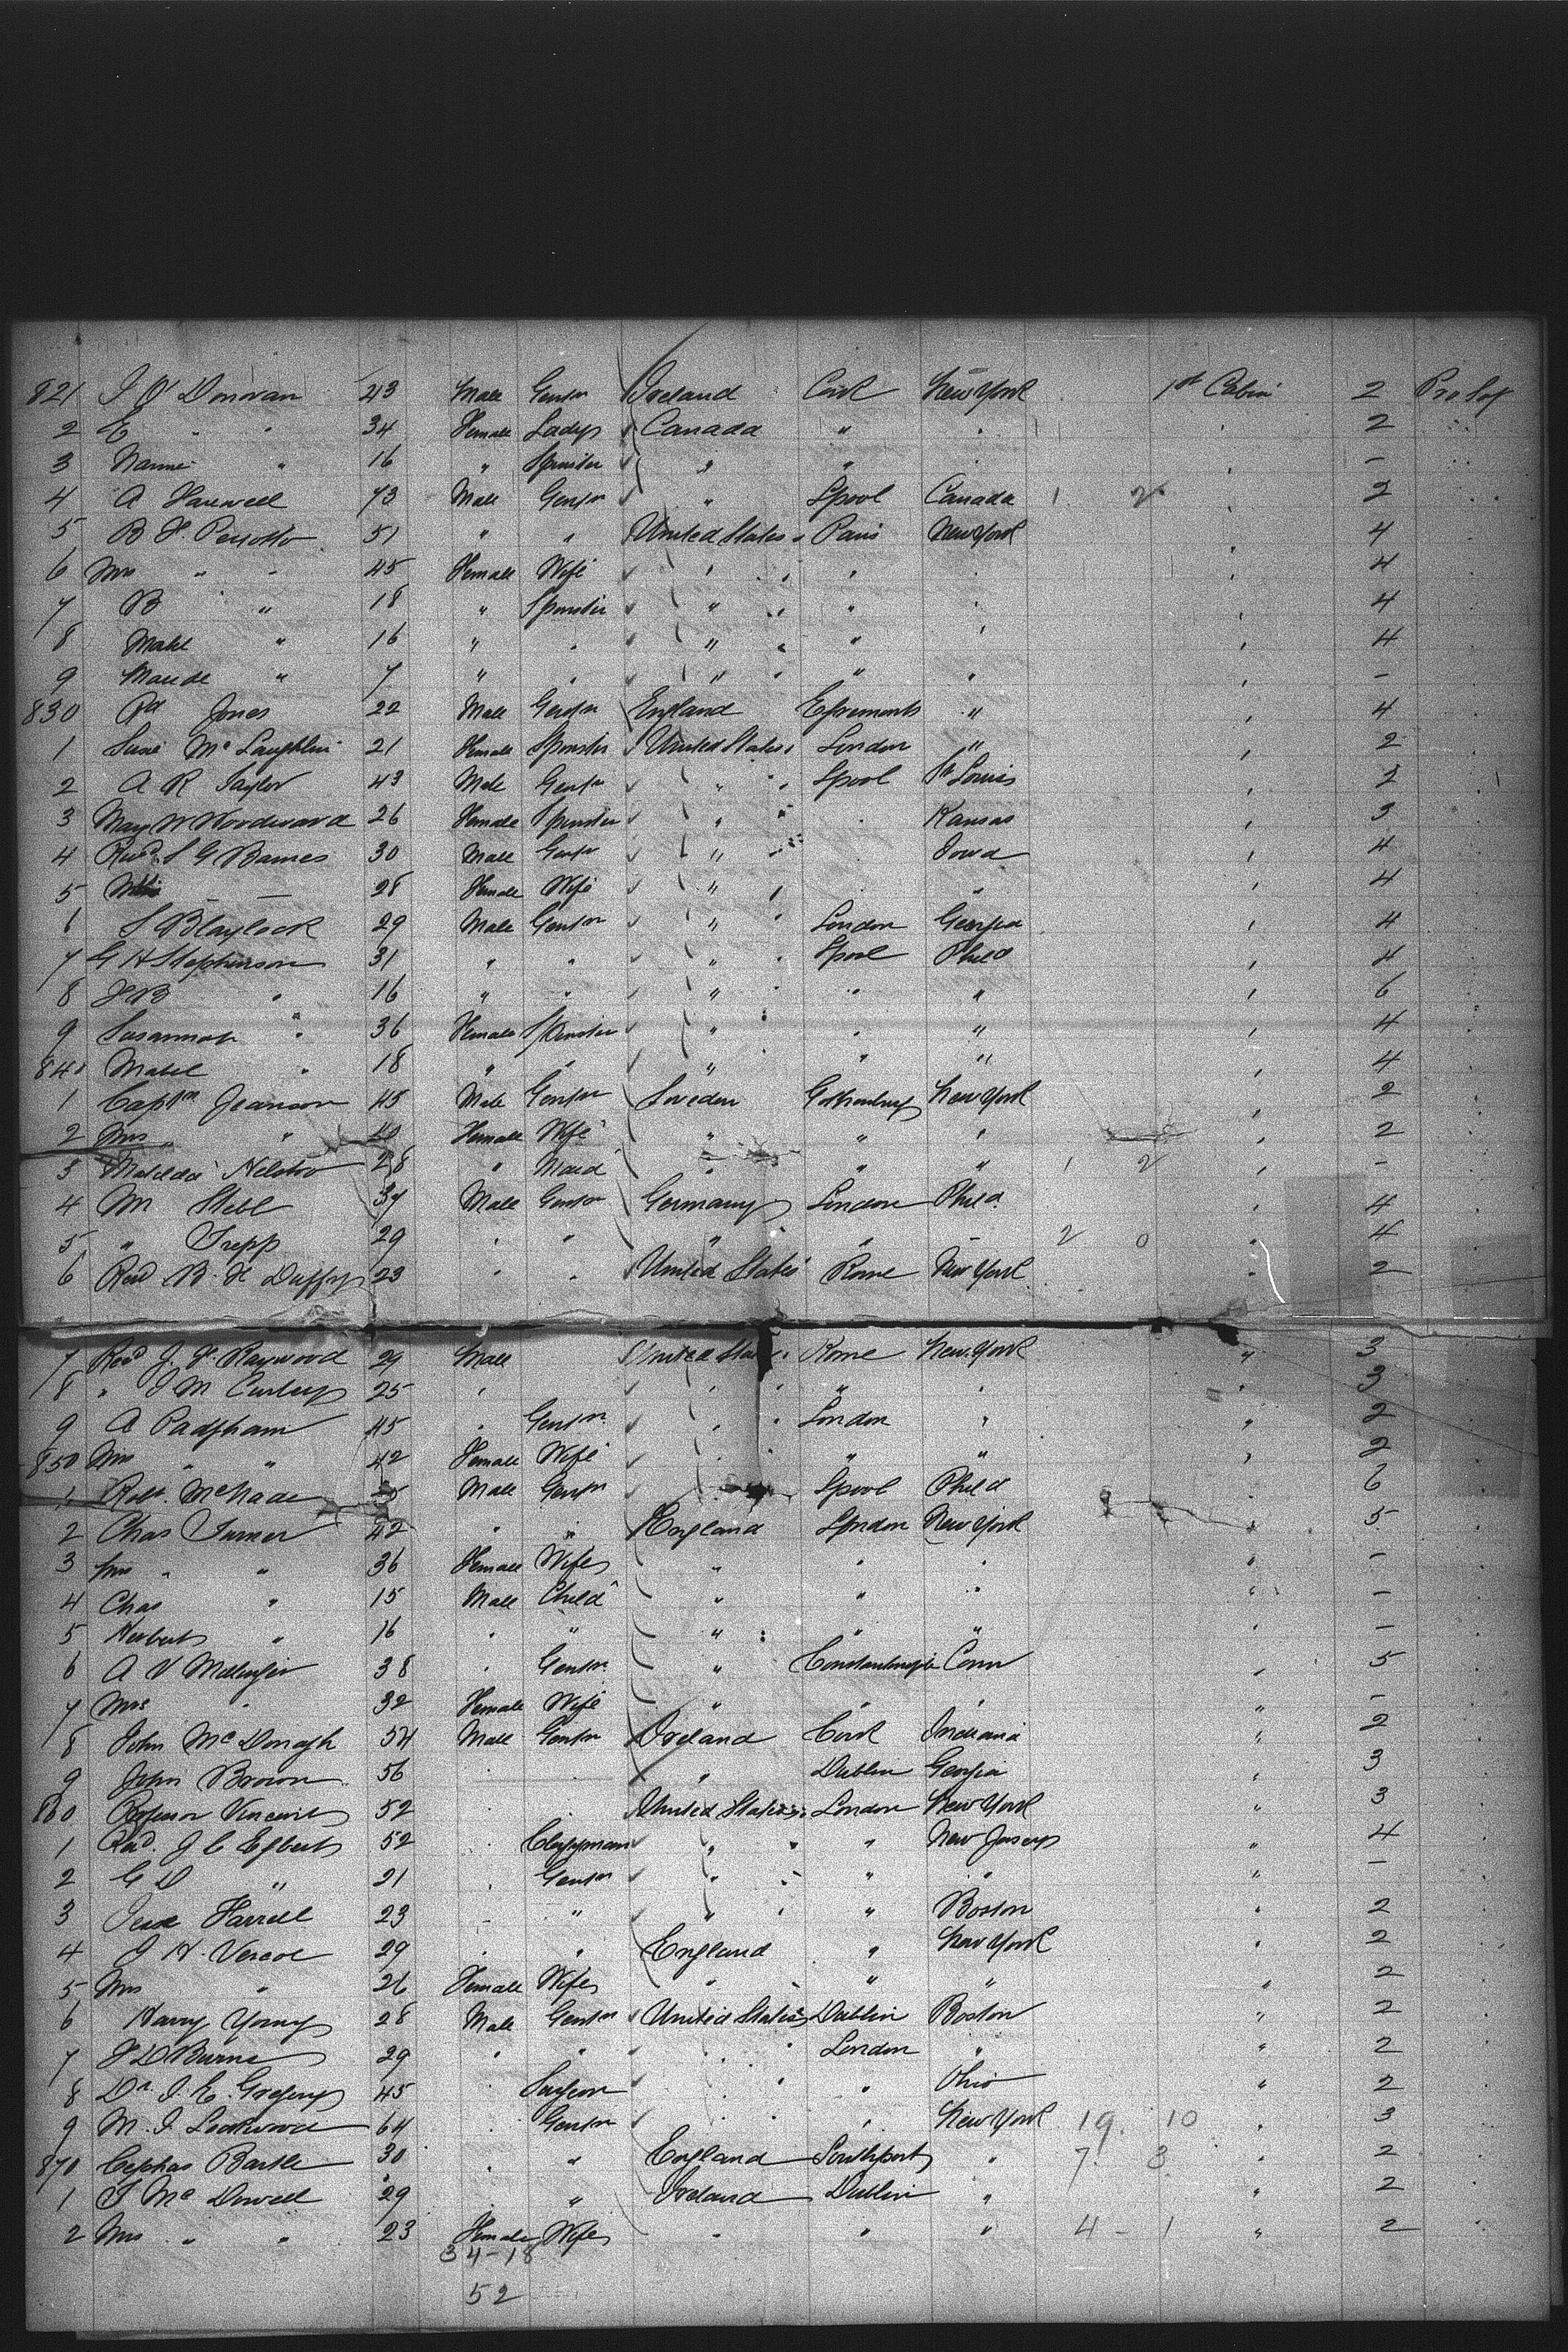 821 J O'Donovan 43 Male Gentn Ireland Cork New York 1st Cabin 2 Pro Sof
2 E " " 34 Female Lady Canada " " " 2 "
3 Nannie " 16 " Spinster " " " " -
4 A Harwell 73 Male Gentn " Lpool Canada 1 2 " 2
5 B F Peixotto 51 " " United States Paris New York 4
6 Mrs " " 45 Female Wife " " " " 4
7 B " 18 " Spinster " " " " 4
8 Mabel " 16 " " " " " " 4
9 Maude " 7 " " " " " " -
830 Rd Jones 22 Male Gentn England " " 4
1 Susie McLaughlin 21 Female Spinster United States London " " 2
2 A R Taylor 43 Male Gentn " Lpool St Louis " 2
3 May W Woodward 26 Female Spinster " " Kansas " 3
4 Revd S G Barnes 30 Male Gentn " " Iowa " 4
5 28 Female Wife " " " " 4
6 S Blaylock 29 Male Gentn " London Georgia " 4
7 G H Stephenson 31 " " " Lpool Phild " 4
8 F B " 16 " " " " " " 6
9 Susannah " 36 Female Spinster " " " " 4
840 Mabel " 18 " " " " " 4
1 Captn Jeanson 45 Male Gentn Sweden Gothenburg New York " 2
2 Mrs " " 40 Female Wife " " " " 2
3 Matilda 28 " Maid " " " 1 2 " -
4 Mr Stebl 37 Male Gentn Germany London Phild " 4
5 " Trepp 29 " " " " " 2 0 " 4
6 Revd B. F Duffy 23 " " United States Rome New York " 2
7 Revd J. F. Raywood 29 Male United States Rome New York " 3
8 " J M Curley 25 " " " " " 3
9 A Padgham 45 " Gentn " London " " 2
850 Mrs " " 42 Female Wife " " " " 2
1 Robt. McNade Male Gentn " Lpool Phild 6
2 Chas Turner 42 " " England London New York " 5
3 Mrs " " 36 Female Wife " " " " -
4 Chas " 15 Male Child " " " " -
5 Herbert " 16 " " " " " " -
6 A V Millinger 38 " Gentn " Constantinople Conn " 5
7 Mrs " 32 Female Wife " " " " -
8 John McDonagh 54 Male Gentn Ireland Cork Indiana " 2
9 John Brown 56 " Dublin Georgia " 3
860 Professor Vincent 52 United States London New York " 3
1 Revd. J C Egbert 52 " Clergyman " " New Jersey " 4
2 G D " 21 " Gentn " " " " -
3 Jesse Harrell 23 " " " " Boston " 2
4 J H. Vercoe 29 " " England " New York " 2
5 Mrs " 26 Female Wife " " " " 2
6 Harry Young 28 Male Gentn United States Dublin Boston " 2
7 F D Burns 29 " " " London " " 2
8 Dr. J. E. Gregory 45 " Surgeon " " Ohio " 2
9 M. I. Lockwood 64 " Gentn " " New York 19 10 " 3
870 Cephas Bartle 30 " " England Southport " 7 3 " 2
1 T McDowell 29 " Ireland Dublin " " 2
2 Mrs " " 23 Female Wife " " " 4 - 1 " 2
34-18
52